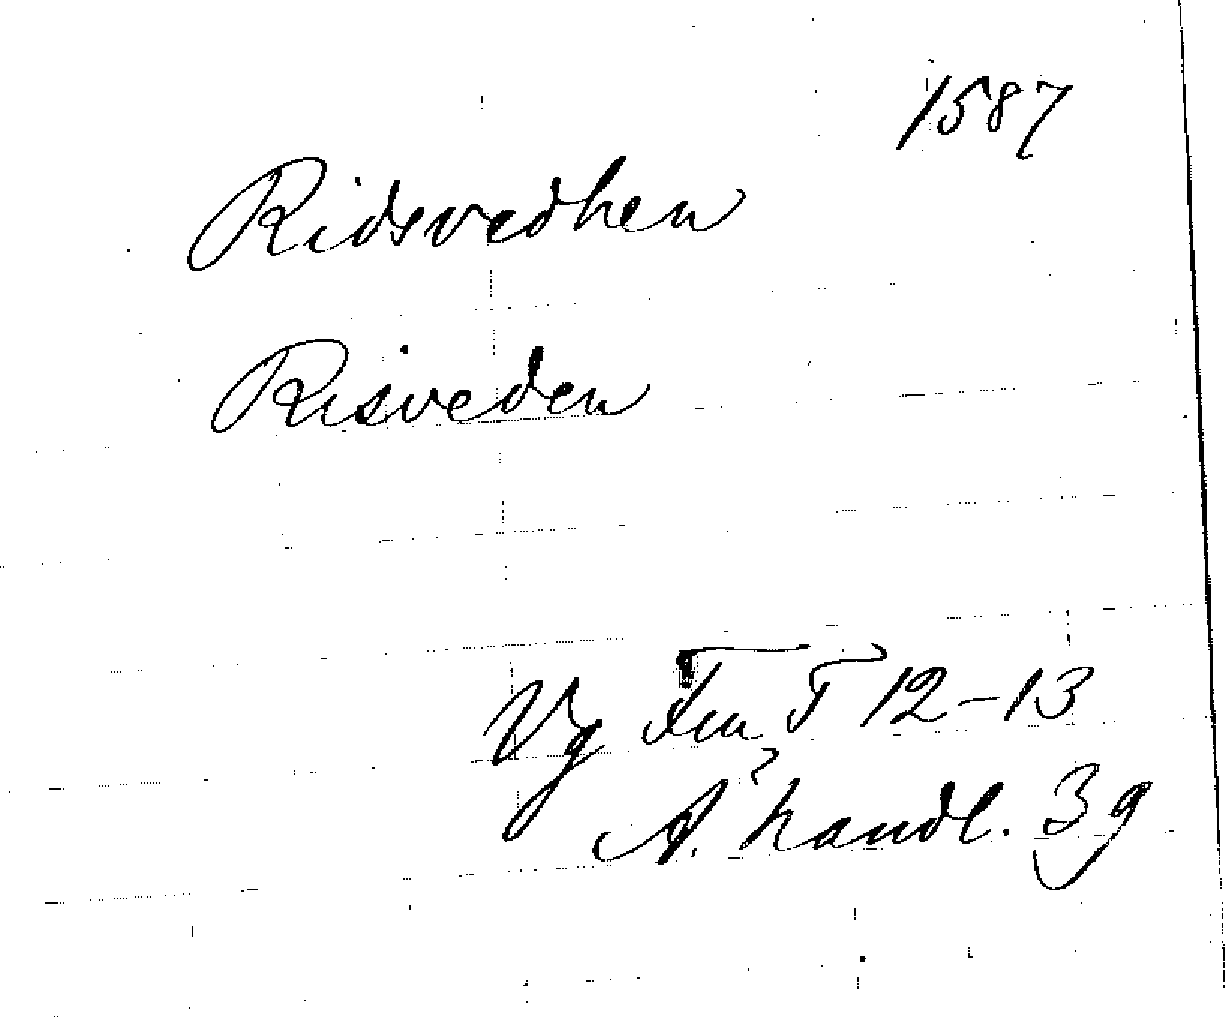 1587
Ridsvedhen
Risveden
Vg T 12-13
A. handl. 39